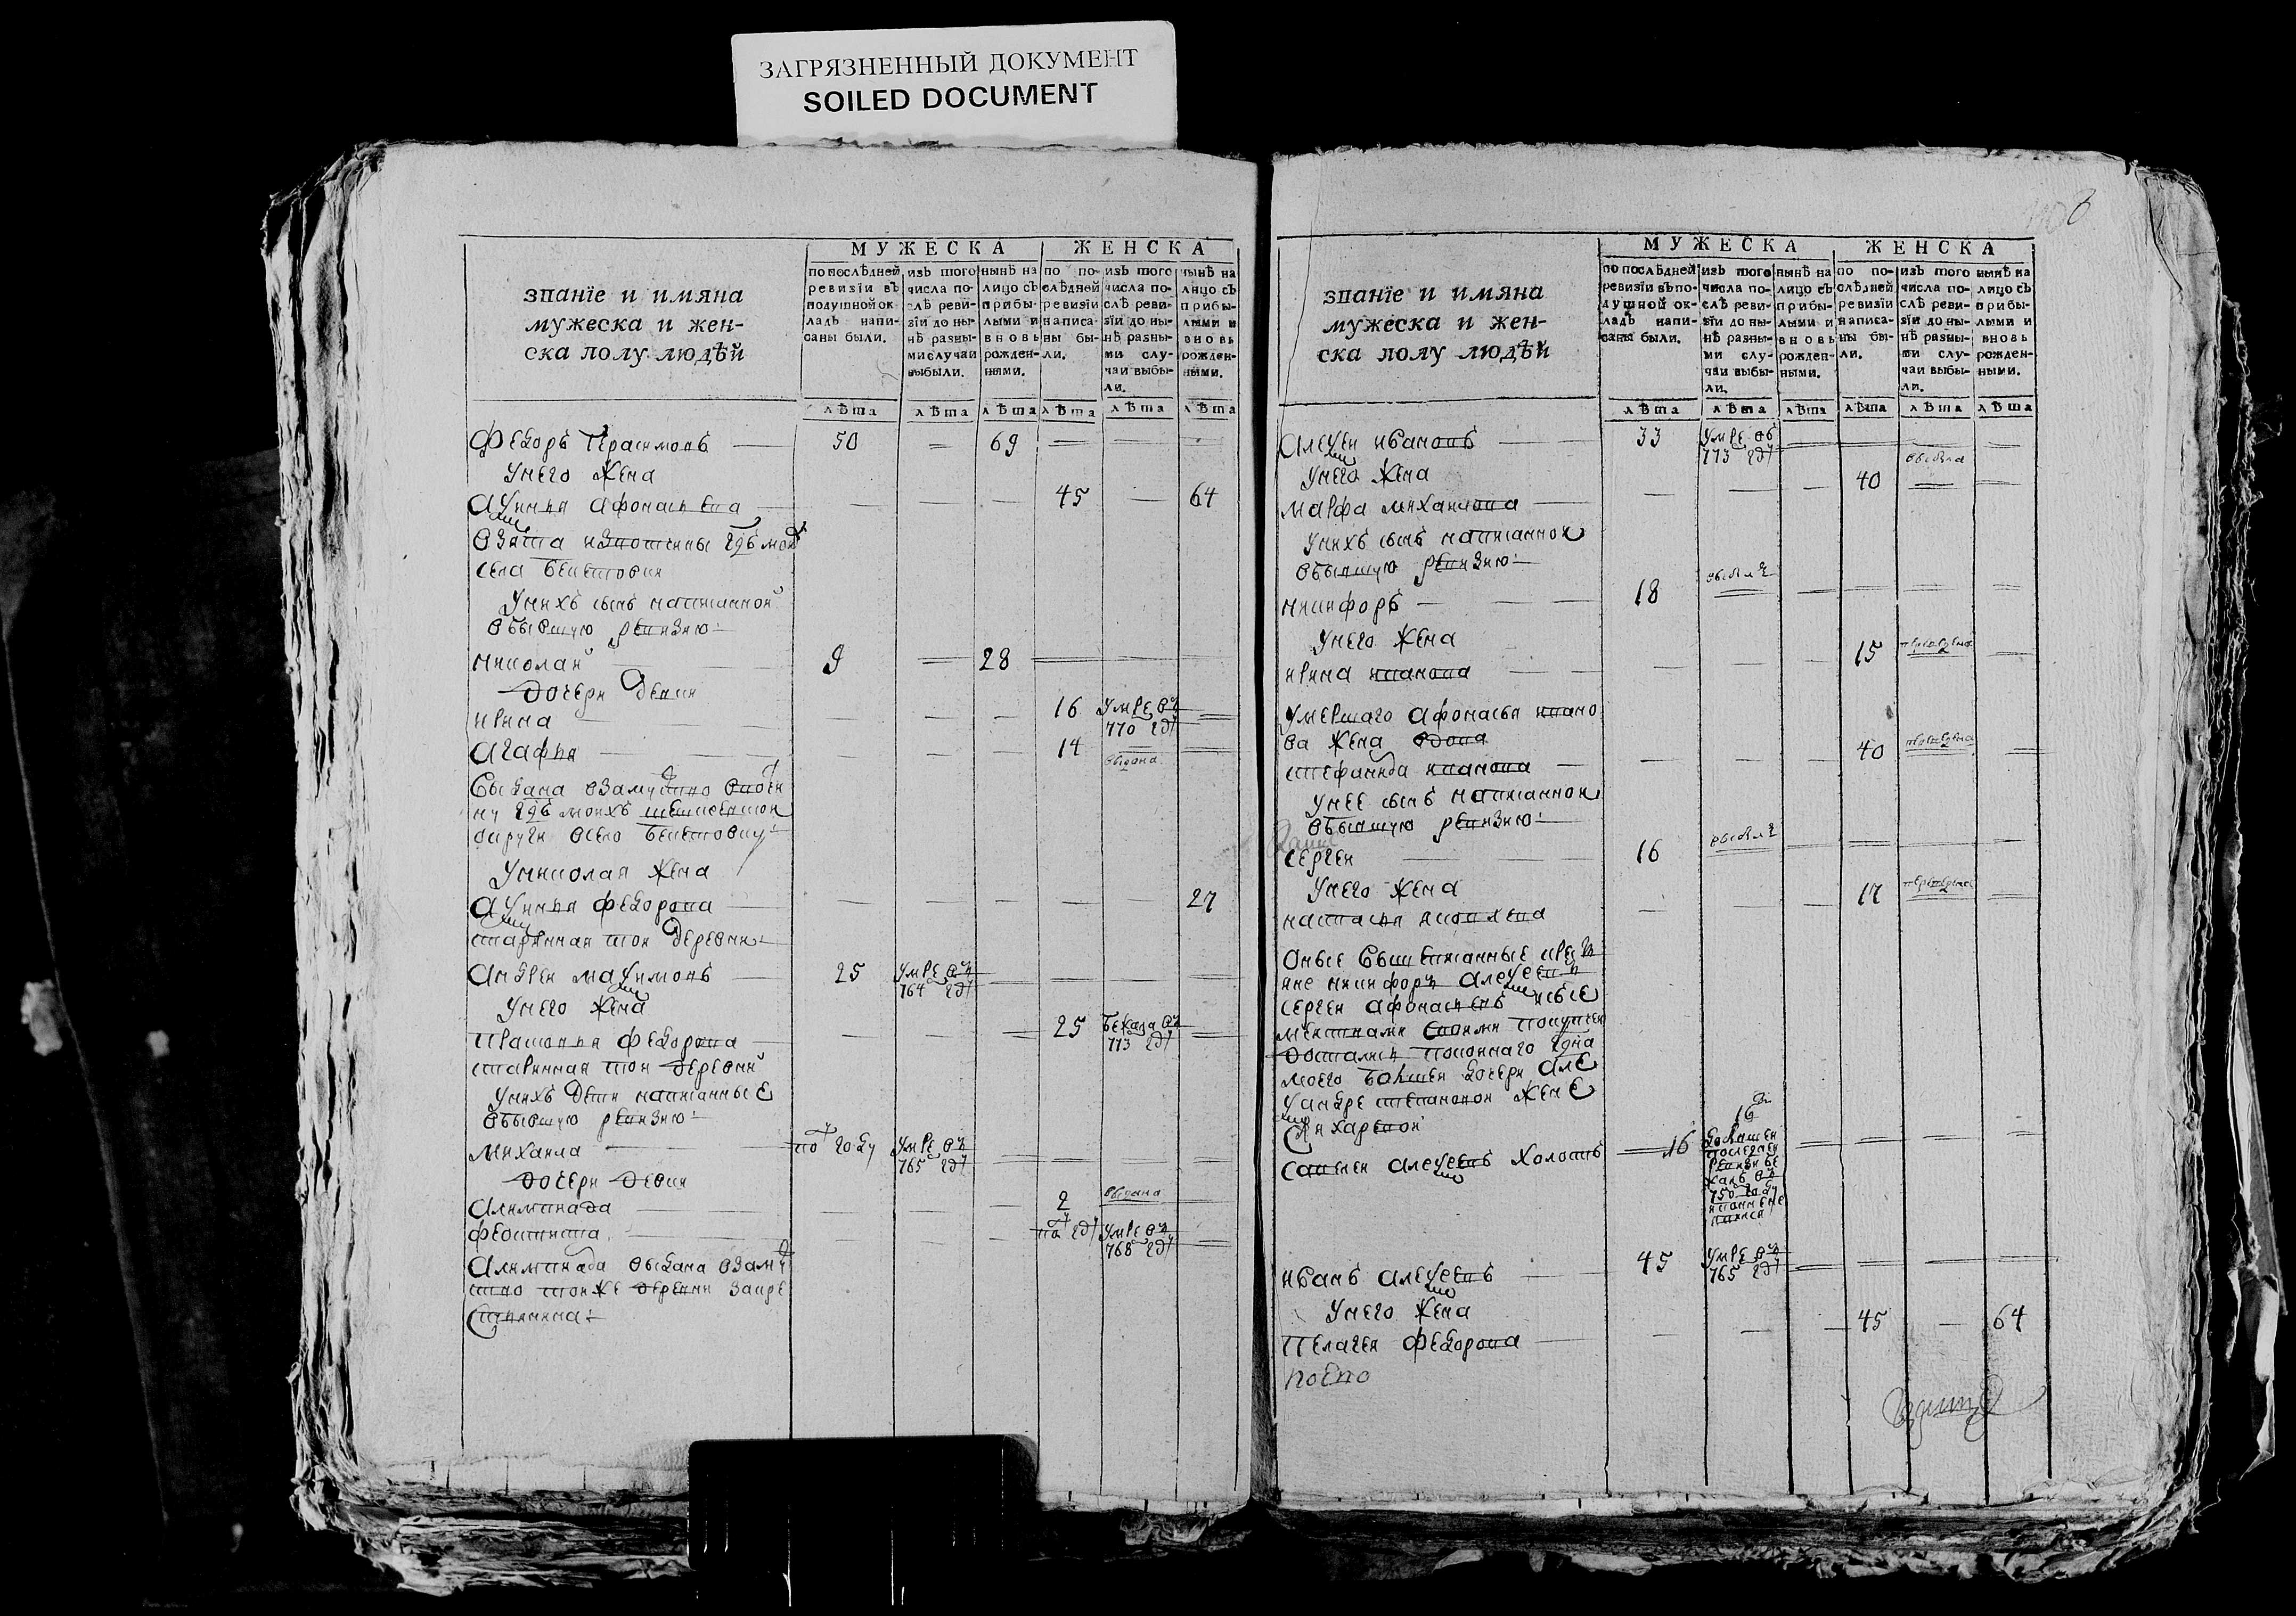 ЗАГРЯЗНЕННЫЙ ДОКУМЕНТ
SOILED DOCUMENT
МУЖЕСКА ЖЕНСКА
званїе и имяна
мужеска и жен-
ска полу людѣй
по послѣдней
ревизїи въ
подушной ок-
ладъ напи-
саны были.
изъ того
числа по-
слѣ реви-
зїи до ны-
нѣ разны-
ми случаи
выбыли.
нынѣ на
лицо съ
прибы-
лыми и
вновь
рожден-
ными.
по по-
слѣдней
ревизїи
написа-
ны бы-
ли.
изъ того
числа по-
слѣ реви-
зїи до ны-
нѣ разны-
ми слу-
чаи выбы-
ли.
нынѣ на
лицо съ
прибы-
лыми и
вновь
рожден-
ными.
лѣта лѣта лѣта лѣта лѣта лѣта
Федоръ Герасимовъ 50 69
У него жена
Аксинья Афонасьева 45 64
взята из вотчины
села
У нихъ сынъ написанной
в бывшую ревизию
Николай 9 28
дочери девки
Ирина 16 умре въ 770 гду
Агафья 14 выдана
Выдана в замужство в вотчи
ну
округи в село
У Николая жена
Аксинья Федорова 27
старинная той деревни
Андрей Максимовъ 25 умре въ 764 гду
У него жена
Прасковья Федорова 25 бежала въ 773 гду
старинная той деревни
У нихъ дети написанные
в бывшую ревизию
Михаила по году умре въ 765 гду
дочери девки
Акилинада 2 выдана
Феоктиста по гду умре въ 768 гду
выдана в заму
ство той же деревни за кре
стьянина
МУЖЕСКА ЖЕНСКА
званїе и имяна
мужеска и жен-
ска полу людѣй
по послѣдней
ревизїи въ по-
душной ок-
ладъ напи-
саны были.
изъ того
числа по-
слѣ реви-
зїи до ны-
нѣ разны-
ми слу-
чаи выбы-
ли.
нынѣ на
лицо съ
прибы-
лыми и
вновь
рожден-
ными.
по по-
слѣдней
ревизїи
написа-
ны бы-
ли.
изъ того
числа по-
слѣ реви-
зїи до ны-
нѣ разны-
ми слу-
чаи выбы-
ли.
нынѣ на
лицо съ
прибы-
лыми и
вновь
рожден-
ными.
лѣта лѣта лѣта лѣта лѣта лѣта
Алексей Ивановъ 33 умре въ 773 гду
У него жена
Марфа Михайлова 40 выбыла
У нихъ сынъ написанной
в бывшую ревизию
Никифоръ 18 выбылъ
У него жена
Ирина Иванова 15 переведена
Умершаго Афонасья Ивано
ва жена вдова
Степанида Иванова 40 переведена
У нее сынъ написанной
в бывшую ревизию
Сергей 16 выбылъ
У него жена
Настасья Яковлева 17 переведена
Оные вышеписанные кресть
яне Никифоръ Алексеевъ
Сергей Афонасьевъ и съ се
мействами своими
достались покойнаго
моего большей дочери Але
ксандре Степановой жене
Савелей Алексеевъ холостъ 16
Иванъ Алексеевъ 45 умре въ 765 гду
У него жена
Пелагея Федорова 45 64